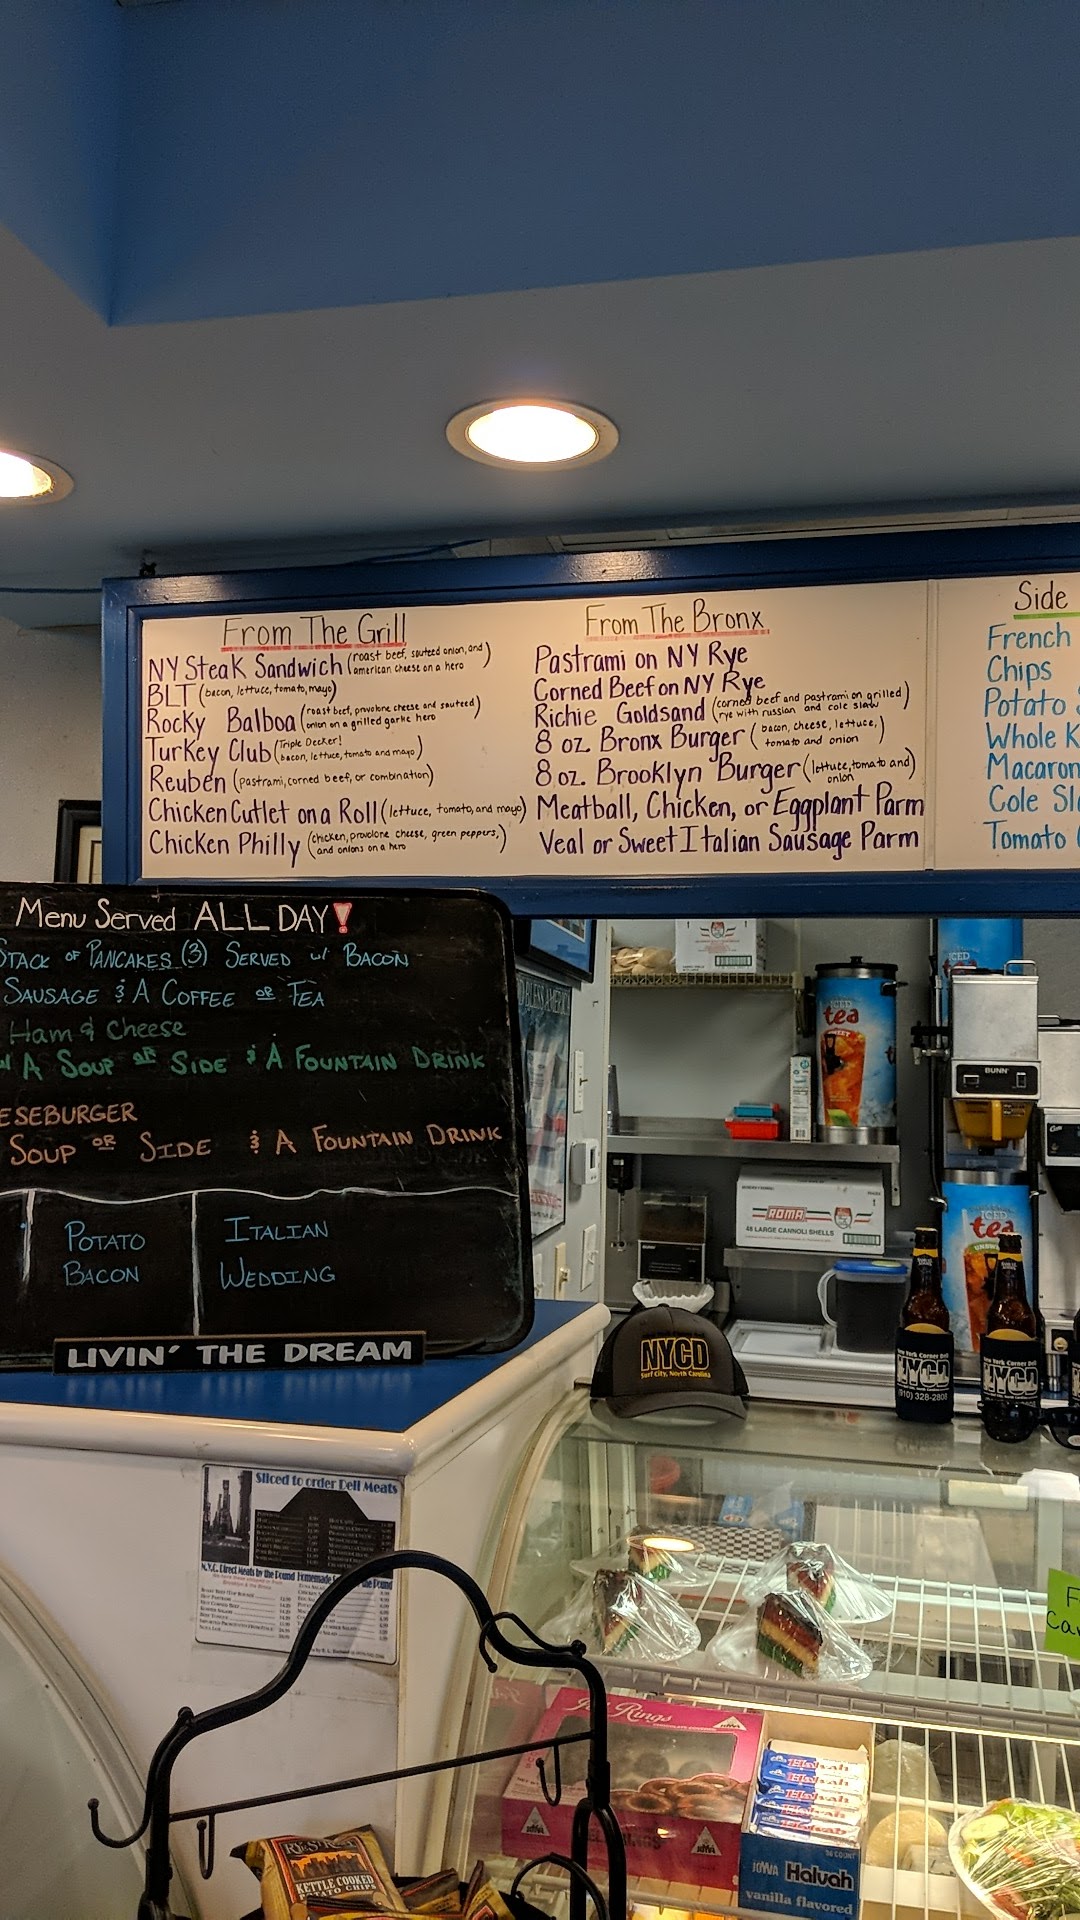 From The Grill
NY Steak Sandwich (roast beef, sauteed onion, and
american cheese on a hero)
BLT (bacon, lettuce, tomato, mayo)
Rocky Balboa (roast beef, provolone cheese and sauteed
onion on a grilled garlic hero)
Turkey Club (Triple Decker!
bacon, lettuce, tomato and mayo)
Reuben (pastrami, corned beef, or combination)
Chicken Cutlet on a Roll (lettuce, tomato, and mayo)
Chicken Philly (chicken, provolone cheese, green peppers,
and onions on a hero)
From The Bronx
Pastrami on NY Rye
Corned Beef on NY Rye
Richie Goldsand (corned beef and pastrami on grilled
rye with russian and cole slaw)
8 oz. Bronx Burger (bacon, cheese, lettuce,
tomato and onion)
8 oz. Brooklyn Burger (lettuce, tomato and
onion)
Meatball, Chicken, or Eggplant Parm
Veal or Sweet Italian Sausage Parm
Side
French
Chips
Potato
Whole K
Macaron
Cole Sla
Tomato
Menu Served ALL DAY!
STACK OF PANCAKES (3) SERVED w/ BACON
SAUSAGE & A COFFEE OR TEA
Ham & Cheese
w/ A SOUP OR SIDE & A FOUNTAIN DRINK
ESEBURGER
SOUP OR SIDE & A FOUNTAIN DRINK
POTATO
BACON
ITALIAN
WEDDING
LIVIN' THE DREAM
ICED
ICED
tea
SWEET
BUNN
ROMA
48 LARGE CANNOLI SHELLS
ICED
tea
NYCD
Surf City, North Carolina
New York Corner Deli
NYCD
(910) 328-2808
New York Corner Deli
NYCD
Sliced to order Deli Meats
N.Y.C. Direct Meats by the Pound
Homemade
the Pound
Rings
JOYVA
Halvah
Halvah
Halvah
Halvah
36 COUNT
Halvah
vanilla flavored
KETTLE COOKED
POTATO CHIPS